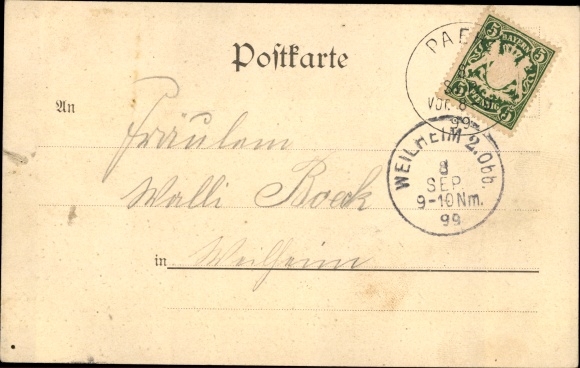 Postkarte
BAYERN
5 5
5 5
PFENNIG
PA
VOR. 8
99
An
Fräulein
Walli Bock
in Weilheim
WEILHEIM 2. Obb.
8
SEP.
9-10 Nm.
99